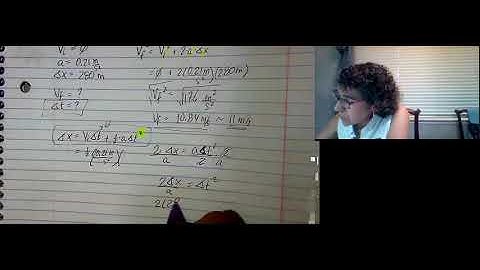 Vᵢ = 0
a = 0.21 m/s²
Δx = 280 m
V_f = ?
Δt = ?
V_f² = Vᵢ² + 2aΔx
= 0 + 2(0.21 m/s²)(280 m)
√V_f² = √117.6 m²/s²
V_f = 10.84 m/s ~ 11 m/s
Δx = VᵢΔt + ½aΔt²
= ½(0.21 m/s²)(
2·Δx/a = aΔt²/2·2/a
2Δx/a = Δt²
2(28